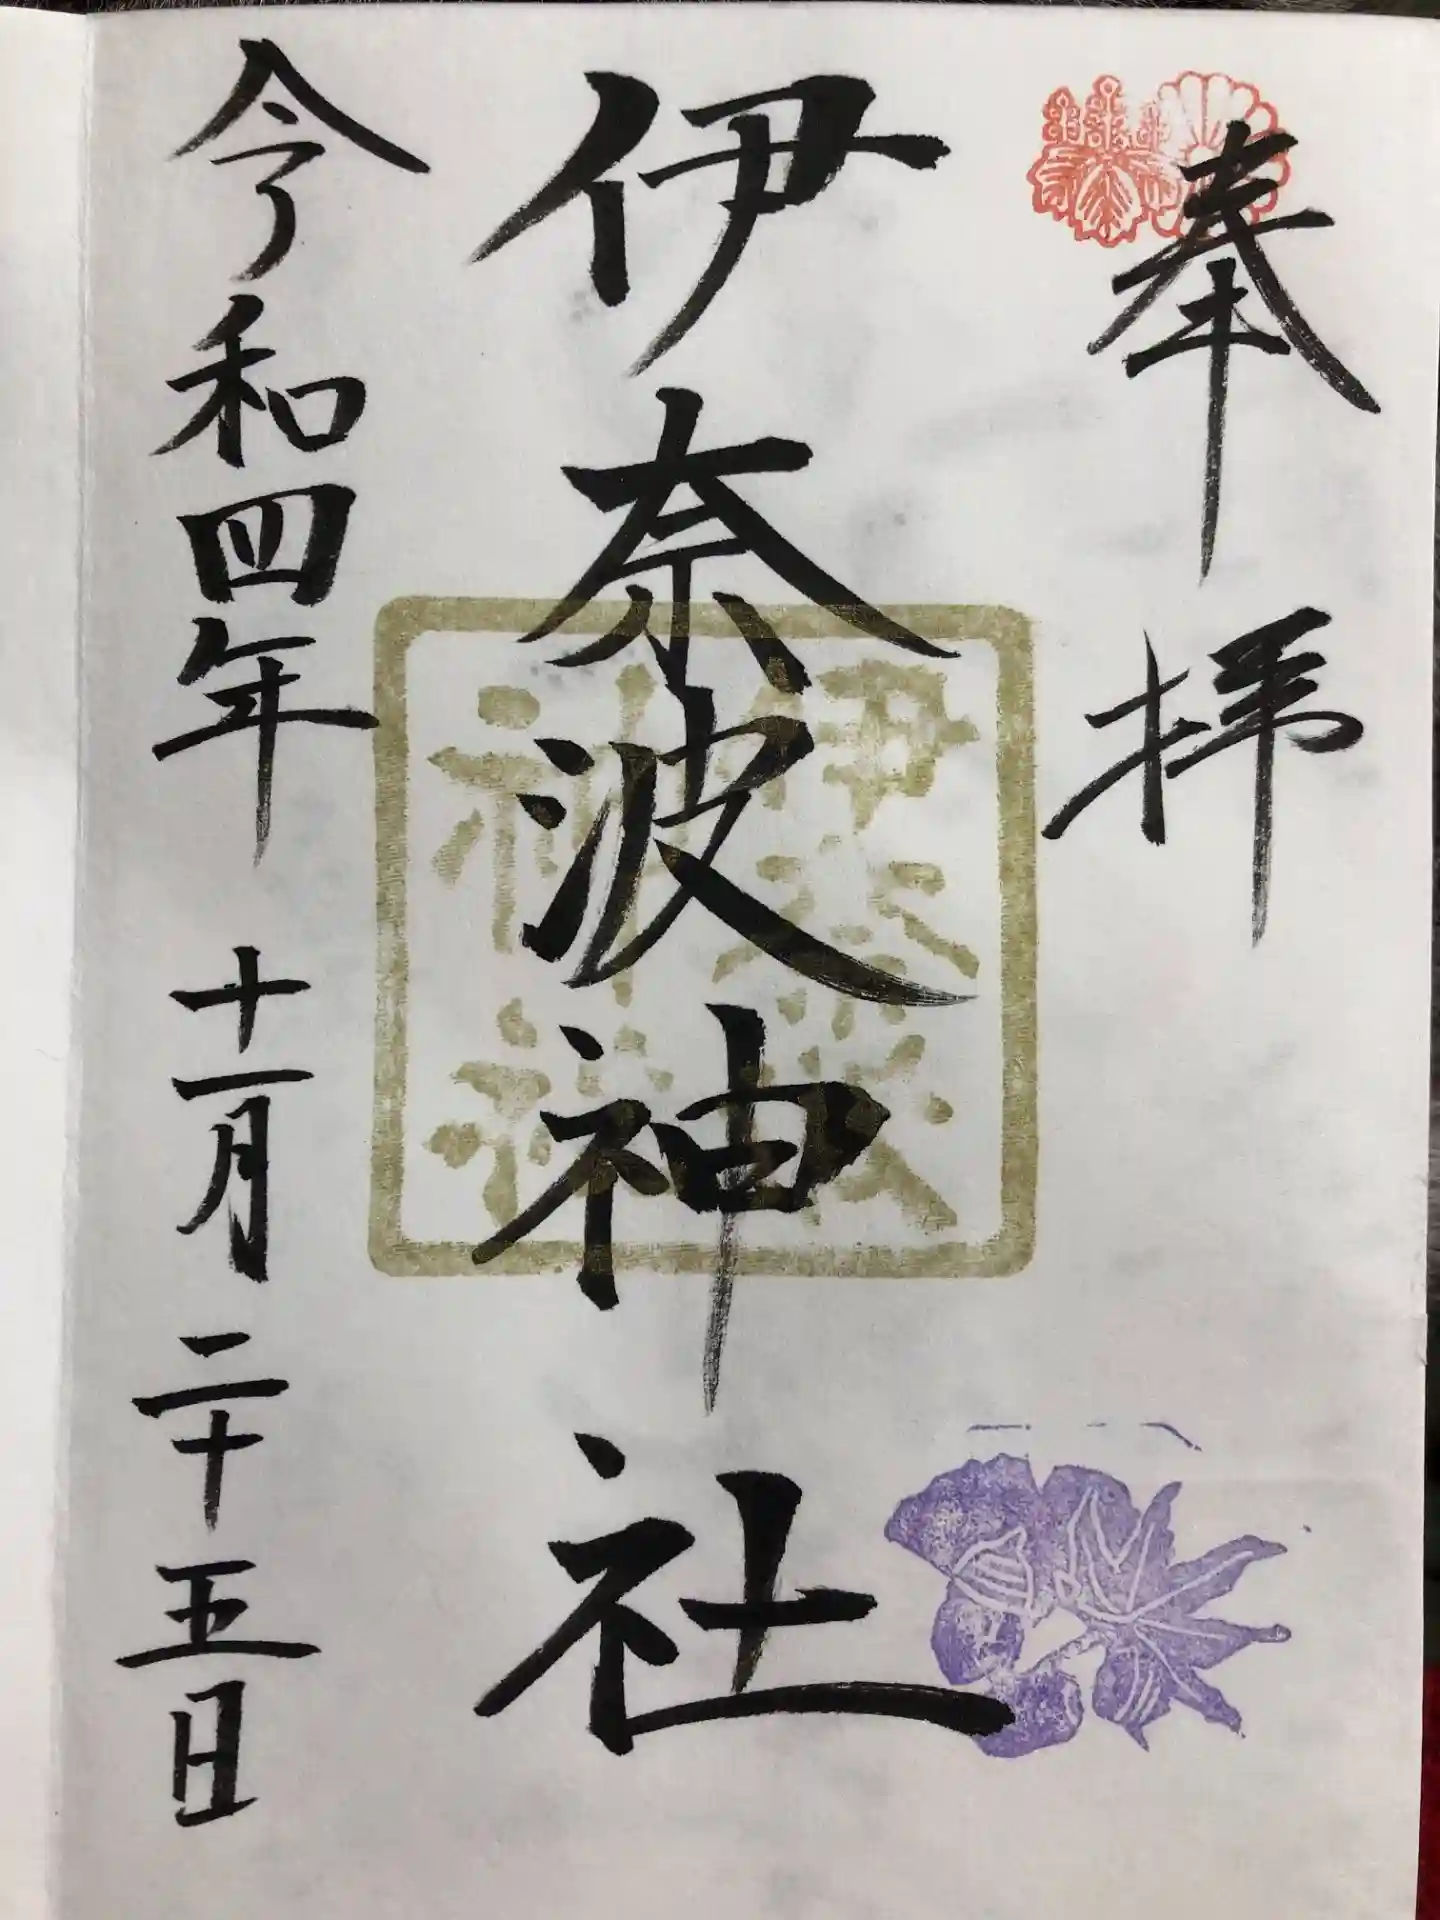 奉拝
伊奈波神社
伊奈波神社
令和四年 十一月 二十五日